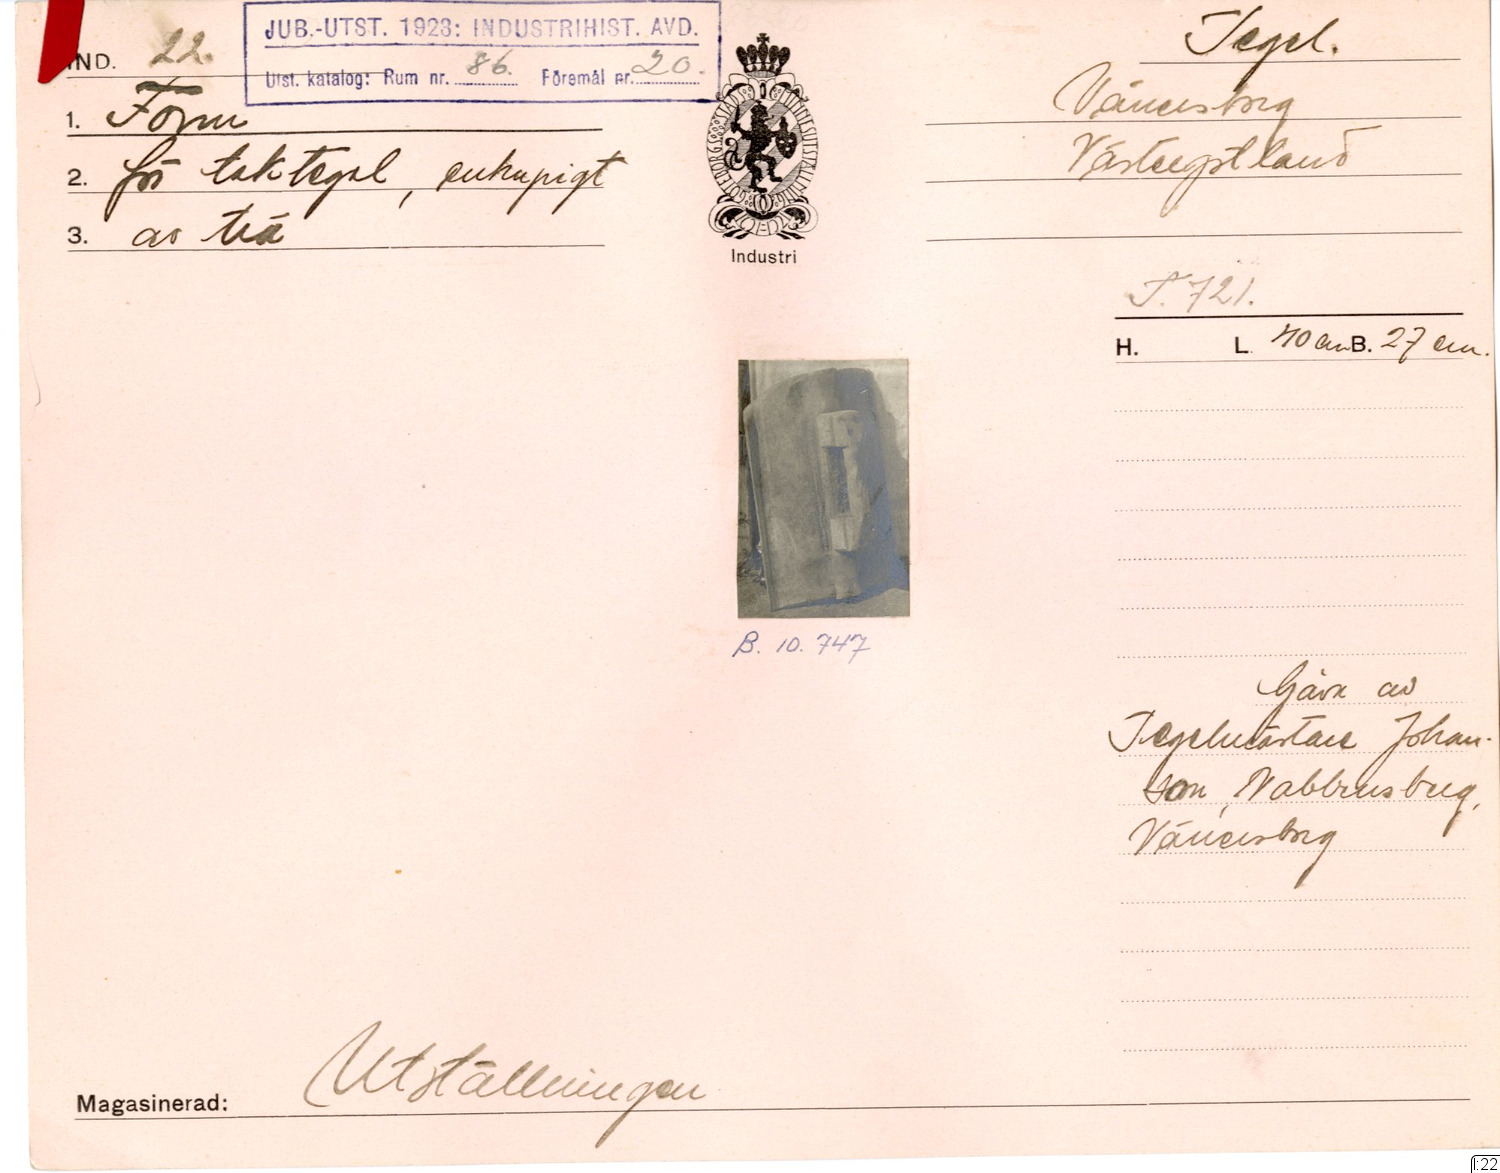 JUB.-UTST. 1923: INDUSTRIHIST. AVD.
Utst. katalog: Rum nr. 86. Föremål nr. 20.
IND. 22.
1. Form
2. för taktegel, enkupigt
3. av trä
GÖTEBORGS STADS JUBILEUMSUTSTÄLLNING
Industri
Tegel.
Vänersborg
Västergötland
T. 721.
H. L. 40 cm B. 27 cm.
B. 10.747
Gåva av
Tegelmästare Johan-
son, Nabbensberg,
Vänersborg
Magasinerad: Utställningen
I:22